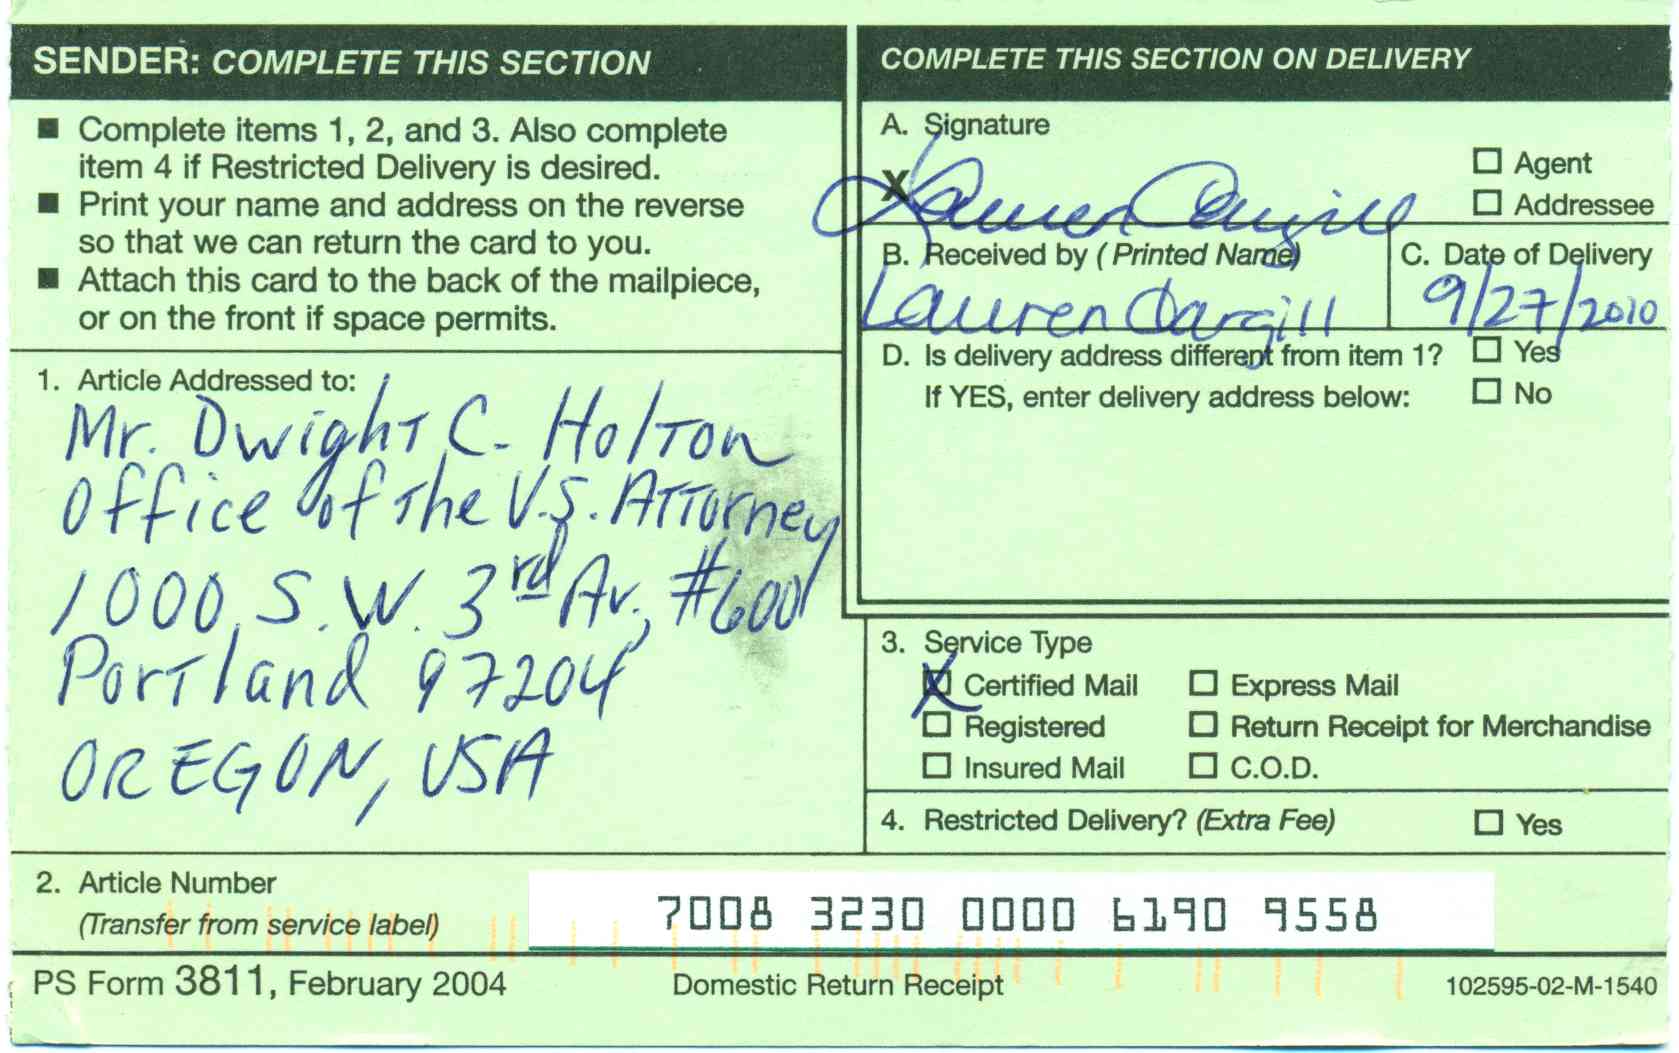 SENDER: COMPLETE THIS SECTION
■ Complete items 1, 2, and 3. Also complete
item 4 if Restricted Delivery is desired.
■ Print your name and address on the reverse
so that we can return the card to you.
■ Attach this card to the back of the mailpiece,
or on the front if space permits.
1. Article Addressed to:
Mr. Dwight C. Holton
Office of the U.S. Attorney
1000 S.W. 3rd Av., #600
Portland 97204
OREGON, USA
COMPLETE THIS SECTION ON DELIVERY
A. Signature
X Lauren Cargill
☐ Agent
☐ Addressee
B. Received by (Printed Name)
Lauren Cargill
C. Date of Delivery
9/27/2010
D. Is delivery address different from item 1? ☐ Yes
If YES, enter delivery address below: ☐ No
3. Service Type
☒ Certified Mail ☐ Express Mail
☐ Registered ☐ Return Receipt for Merchandise
☐ Insured Mail ☐ C.O.D.
4. Restricted Delivery? (Extra Fee) ☐ Yes
2. Article Number
(Transfer from service label)
7008 3230 0000 6190 9558
PS Form 3811, February 2004 Domestic Return Receipt 102595-02-M-1540